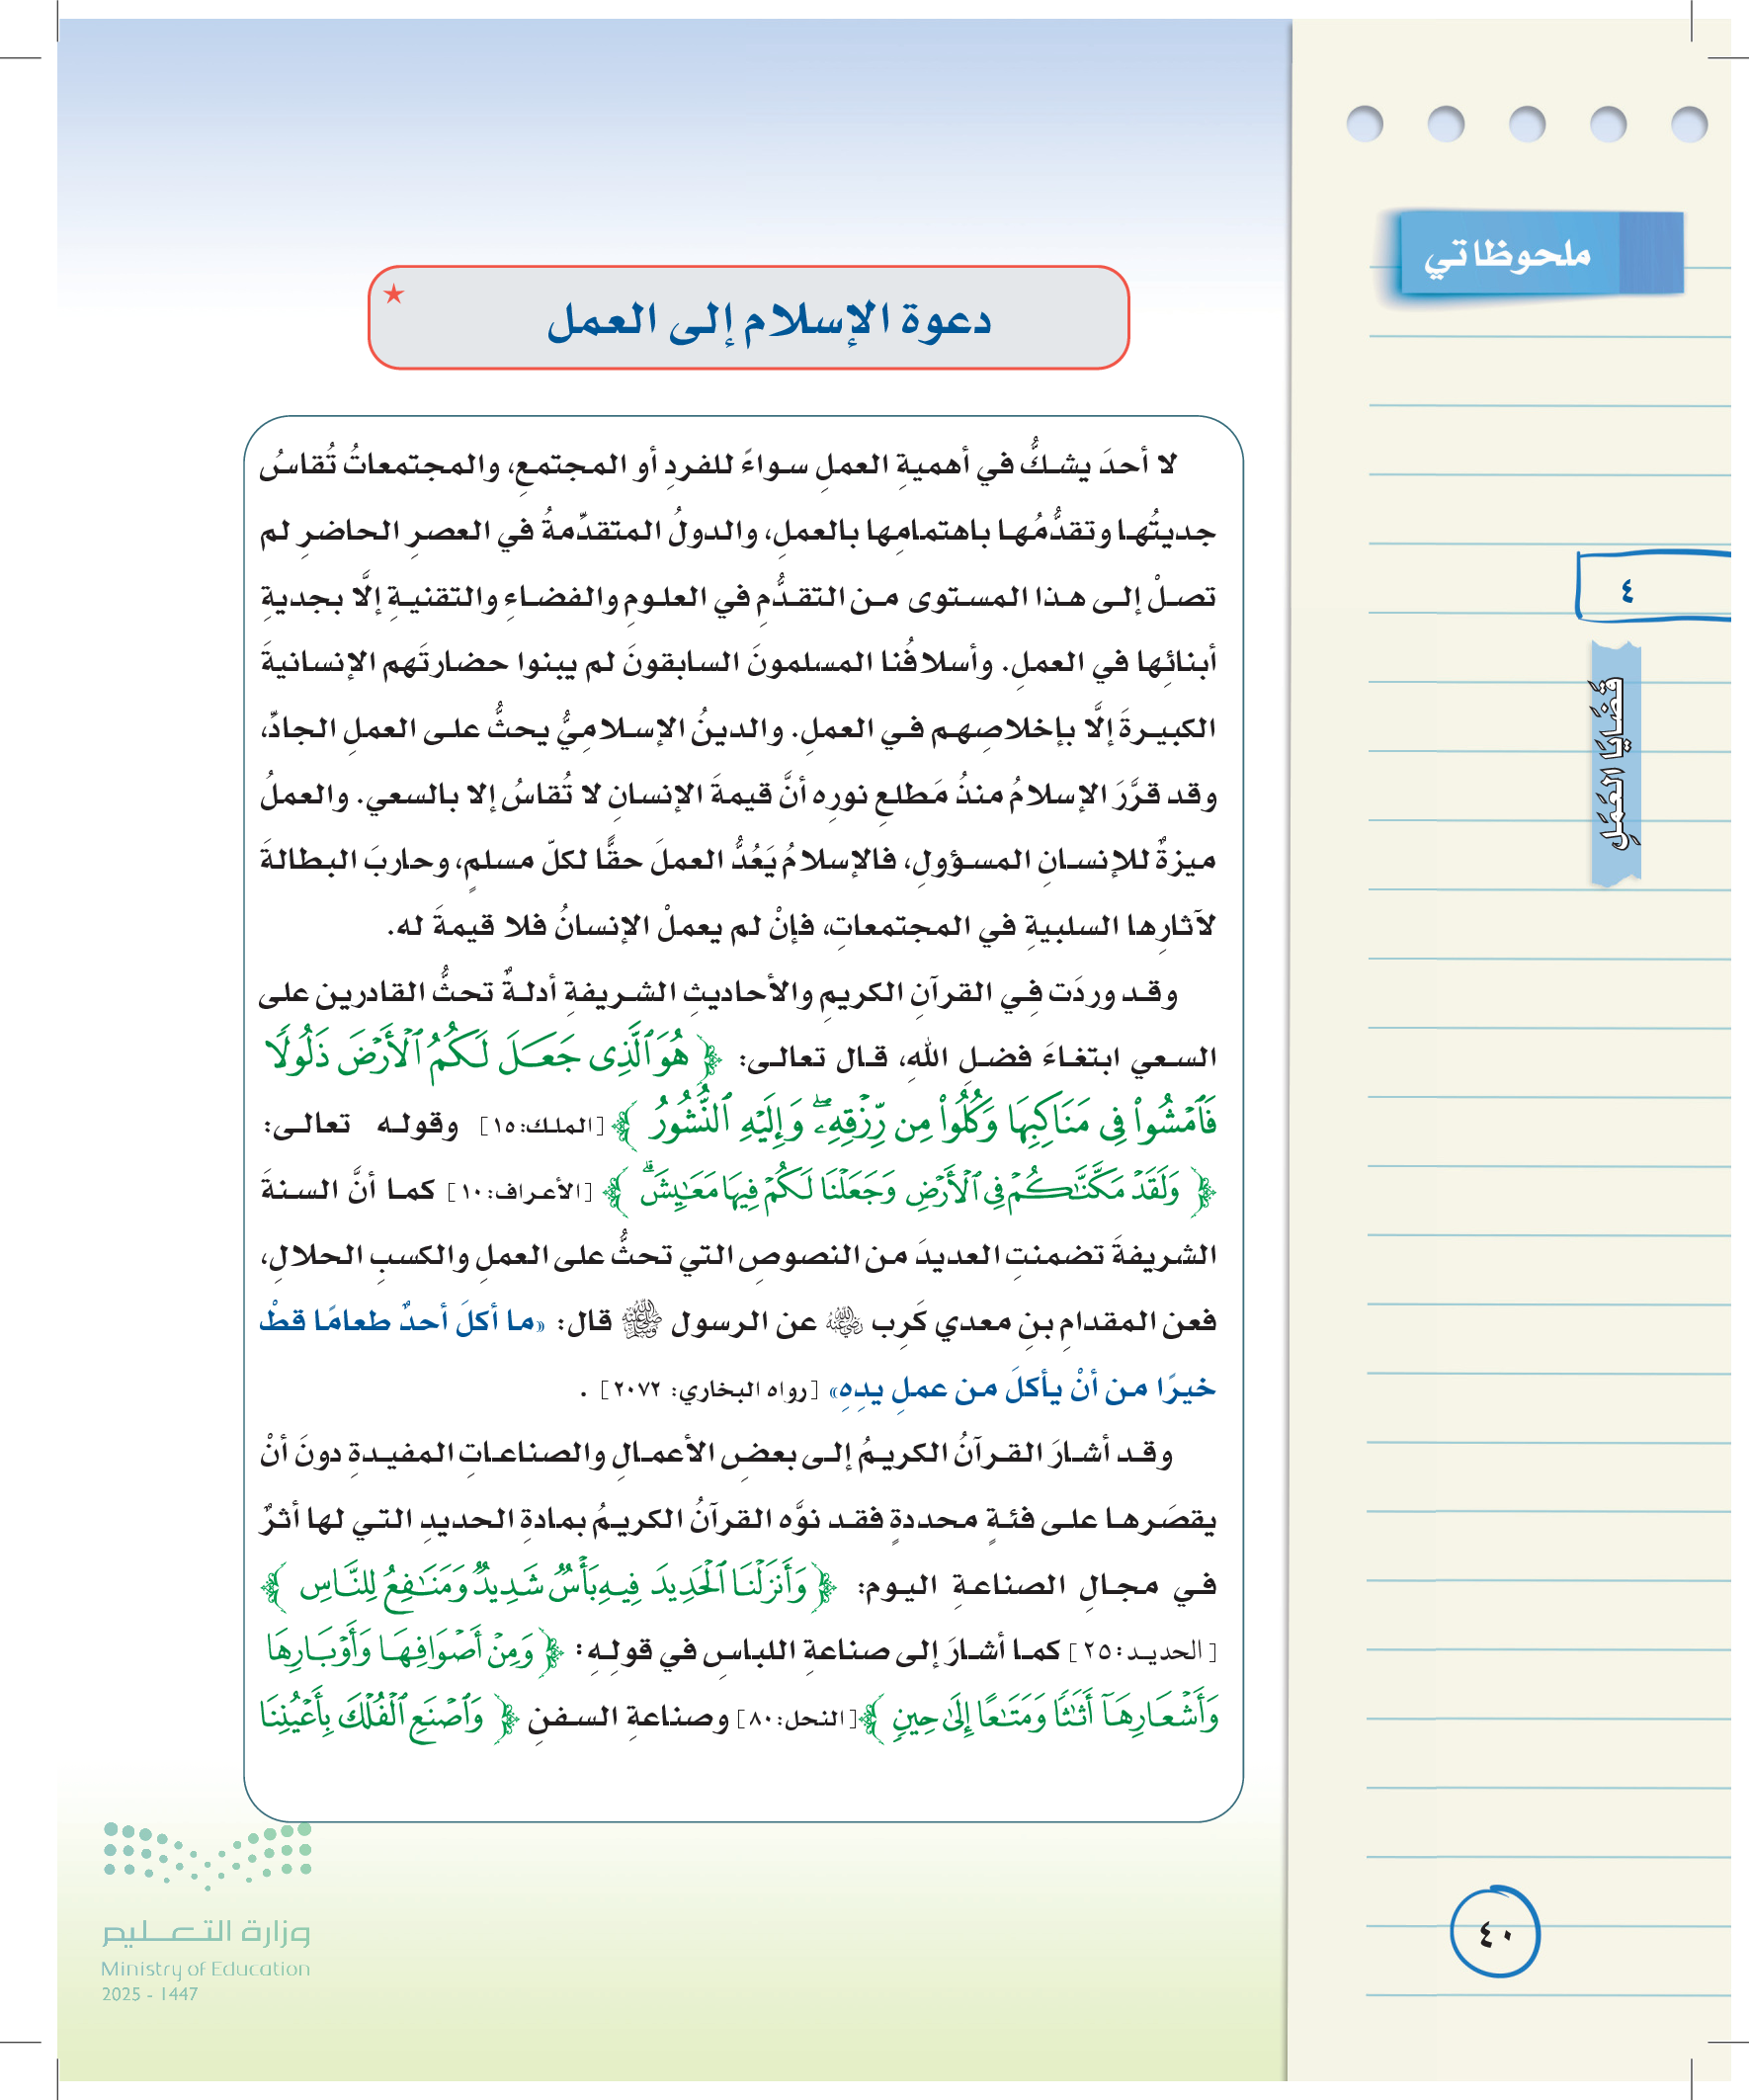 ملحوظاتي
٤
قَضَايَا العَمَلِ
دعوة الإسلام إلى العمل
لا أحدَ يشكُّ في أهميةِ العملِ سواءً للفردِ أو المجتمعِ، والمجتمعاتُ تُقاسُ
جديتُها وتقدُّمُها باهتمامِها بالعملِ، والدولُ المتقدِّمةُ في العصرِ الحاضرِ لم
تصلْ إلى هذا المستوى من التقدُّمِ في العلومِ والفضاءِ والتقنيةِ إلَّا بجديةِ
أبنائِها في العملِ. وأسلافُنا المسلمونَ السابقونَ لم يبنوا حضارتَهم الإنسانيةَ
الكبيرةَ إلَّا بإخلاصِهم في العملِ. والدينُ الإسلاميُّ يحثُّ على العملِ الجادِّ،
وقد قرَّرَ الإسلامُ منذُ مَطلعِ نورِه أنَّ قيمةَ الإنسانِ لا تُقاسُ إلا بالسعي. والعملُ
ميزةٌ للإنسانِ المسؤولِ، فالإسلامُ يَعُدُّ العملَ حقًّا لكلّ مسلمٍ، وحاربَ البطالةَ
لآثارِها السلبيةِ في المجتمعاتِ، فإنْ لم يعملْ الإنسانُ فلا قيمةَ له.
وقد وردَت فِي القرآنِ الكريمِ والأحاديثِ الشريفةِ أدلةٌ تحثُّ القادرين على
السعي ابتغاءَ فضلِ اللهِ، قال تعالى: ﴿ هُوَ ٱلَّذِى جَعَلَ لَكُمُ ٱلْأَرْضَ ذَلُولًا
فَٱمْشُوا۟ فِى مَنَاكِبِهَا وَكُلُوا۟ مِن رِّزْقِهِۦ ۖ وَإِلَيْهِ ٱلنُّشُورُ ﴾ [الملك:١٥] وقوله تعالى:
﴿ وَلَقَدْ مَكَّنَّٰكُمْ فِى ٱلْأَرْضِ وَجَعَلْنَا لَكُمْ فِيهَا مَعَٰيِشَ ۗ ﴾ [الأعراف:١٠] كما أنَّ السنةَ
الشريفةَ تضمنتِ العديدَ من النصوصِ التي تحثُّ على العملِ والكسبِ الحلالِ،
فعن المقدامِ بنِ معدي كَرِب رضي الله عنه عن الرسول ﷺ قال: «ما أكلَ أحدٌ طعامًا قطْ
خيرًا من أنْ يأكلَ من عملِ يدِهِ» [رواه البخاري: ٢٠٧٢] .
وقد أشارَ القرآنُ الكريمُ إلى بعضِ الأعمالِ والصناعاتِ المفيدةِ دونَ أنْ
يقصَرها على فئةٍ محددةٍ فقد نوَّه القرآنُ الكريمُ بمادةِ الحديدِ التي لها أثرٌ
في مجالِ الصناعةِ اليوم: ﴿ وَأَنزَلْنَا ٱلْحَدِيدَ فِيهِ بَأْسٌ شَدِيدٌ وَمَنَٰفِعُ لِلنَّاسِ ﴾
[الحديد:٢٥] كما أشارَ إلى صناعةِ اللباسِ في قولِهِ: ﴿ وَمِنْ أَصْوَافِهَا وَأَوْبَارِهَا
وَأَشْعَارِهَآ أَثَٰثًا وَمَتَٰعًا إِلَىٰ حِينٍ ﴾ [النحل:٨٠] وصناعةِ السفنِ ﴿ وَٱصْنَعِ ٱلْفُلْكَ بِأَعْيُنِنَا
٤٠
وزارة التعليم
Ministry of Education
2025 - 1447